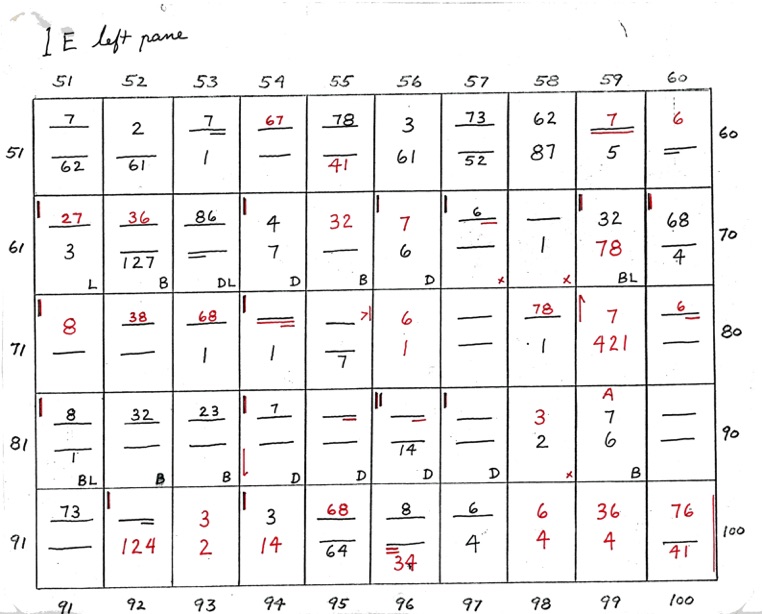 I E left pane
51 52 53 54 55 56 57 58 59 60
7 2 7 67 78 3 73 62 7 6 60
51 62 61 1 41 61 52 87 5
27 36 86 4 32 7 6 32 68 70
61 3 127 7 6 1 78 4
L B DL D B D x x BL
8 38 68 6 78 7 6 80
71 1 1 7 1 1 421
A
8 32 23 7 3 7 90
81 1 14 2 6
BL B B D D D D x B
73 3 3 68 8 6 6 36 76 100
91 124 2 14 64 34 4 4 4 41
91 92 93 94 95 96 97 98 99 100